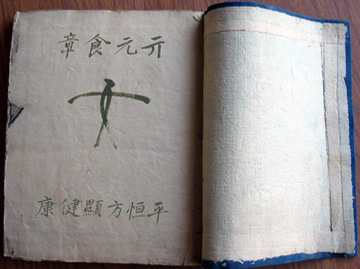 亓元食章
平恒方顯健康